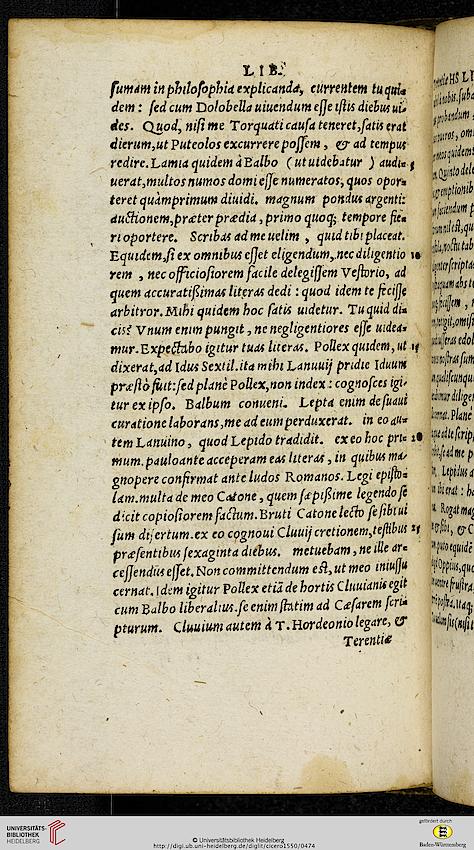 LIB.
sumam in philosophia explicanda, currentem tu quia
dem: sed cum Dolobella uiuendum esse istis diebus ui-
des. Quod, nisi me Torquati causa teneret, satis erat
dierum, ut Puteolos excurrere possem, & ad tempus
redire. Lamia quidem à Balbo (ut uidebatur) audi= 5
uerat, multos numos domi esse numeratos, quos opor=
teret quàmprimum diuidi. magnum pondus argenti:
auctionem, præter prædia, primo quoq; tempore fie=
ri oportere. Scribas ad me uelim, quid tibi placeat.
Equidem, si ex omnibus esset eligendum, nec diligentio 10
rem, nec officiosiorem facile delegissem Vestorio, ad
quem accuratißimas literas dedi: quod idem te fecisse
arbitror. Mihi quidem hoc satis uidetur. Tu quid di=
cis? Vnum enim pungit, ne negligentiores esse uidea=
mur. Expectabo igitur tuas literas. Pollex quidem, ut 15
dixerat, ad Idus Sextil. ita mihi Lanuuij pridie Iduum
præstò fuit: sed planè Pollex, non index: cognosces igi=
tur ex ipso. Balbum conueni. Lepta enim de suaui
curatione laborans, me ad eum perduxerat. in eo au=
tem Lanuino, quod Lepido tradidit. ex eo hoc pri= 20
mum. pauloante acceperam eas literas, in quibus ma
gnopere confirmat ante ludos Romanos. Legi episto=
lam. multa de meo Catone, quem sæpißime legendo se
dicit copiosiorem factum. Bruti Catone lecto se sibi ui
sum disertum. ex eo cognoui Cluuij cretionem, testibus 25
præsentibus sexaginta diebus. metuebam, ne ille ar=
cessendus esset. Non committendum est, ut meo iniussu
cernat. Idem igitur Pollex etiã de hortis Cluuianis egit
cum Balbo liberalius. se enim statim ad Cæsarem scri=
pturum. Cluuium autem à T. Hordeonio legare, &
Terentiæ
UNIVERSITÄTS-
BIBLIOTHEK
HEIDELBERG
© Universitätsbibliothek Heidelberg
http://digi.ub.uni-heidelberg.de/diglit/cicero1550/0474
gefördert durch
Baden-Württemberg